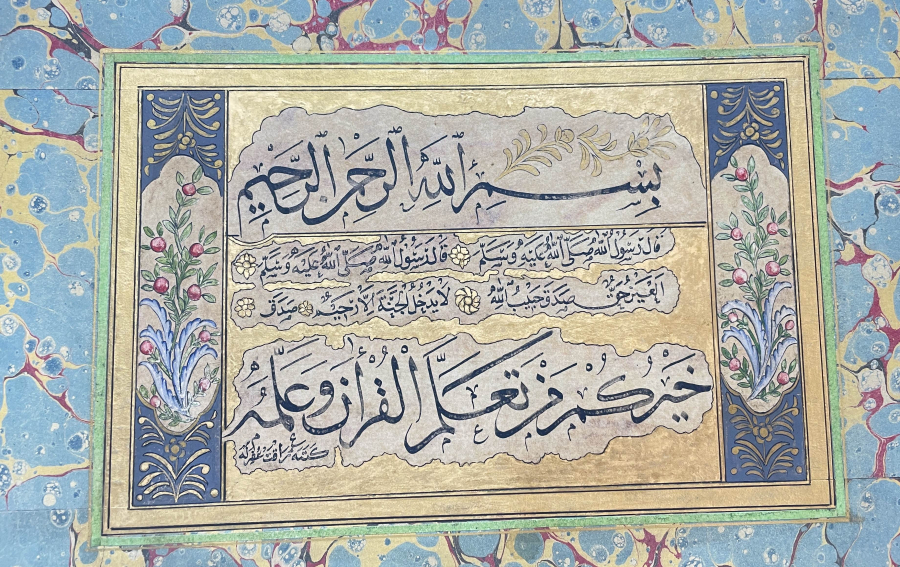 بِسْمِ اللّٰهِ الرَّحْمٰنِ الرَّحِيمِ
قَالَ رَسُولُ اللّٰهِ صَلَّى اللّٰهُ عَلَيْهِ وَسَلَّمَ قَالَ رَسُولُ اللّٰهِ صَلَّى اللّٰهُ عَلَيْهِ وَسَلَّمَ
اَلْعَيْنُ حَقٌّ صَدَقَ حَبِيبُ اللّٰهِ لَا يَدْخُلُ الْجَنَّةَ اِلَّا رَحِيمٌ صَدَقَ
خَيْرُكُمْ مَنْ تَعَلَّمَ الْقُرْأٰنَ وَعَلَّمَهُ
كتبه رأفت غفرله